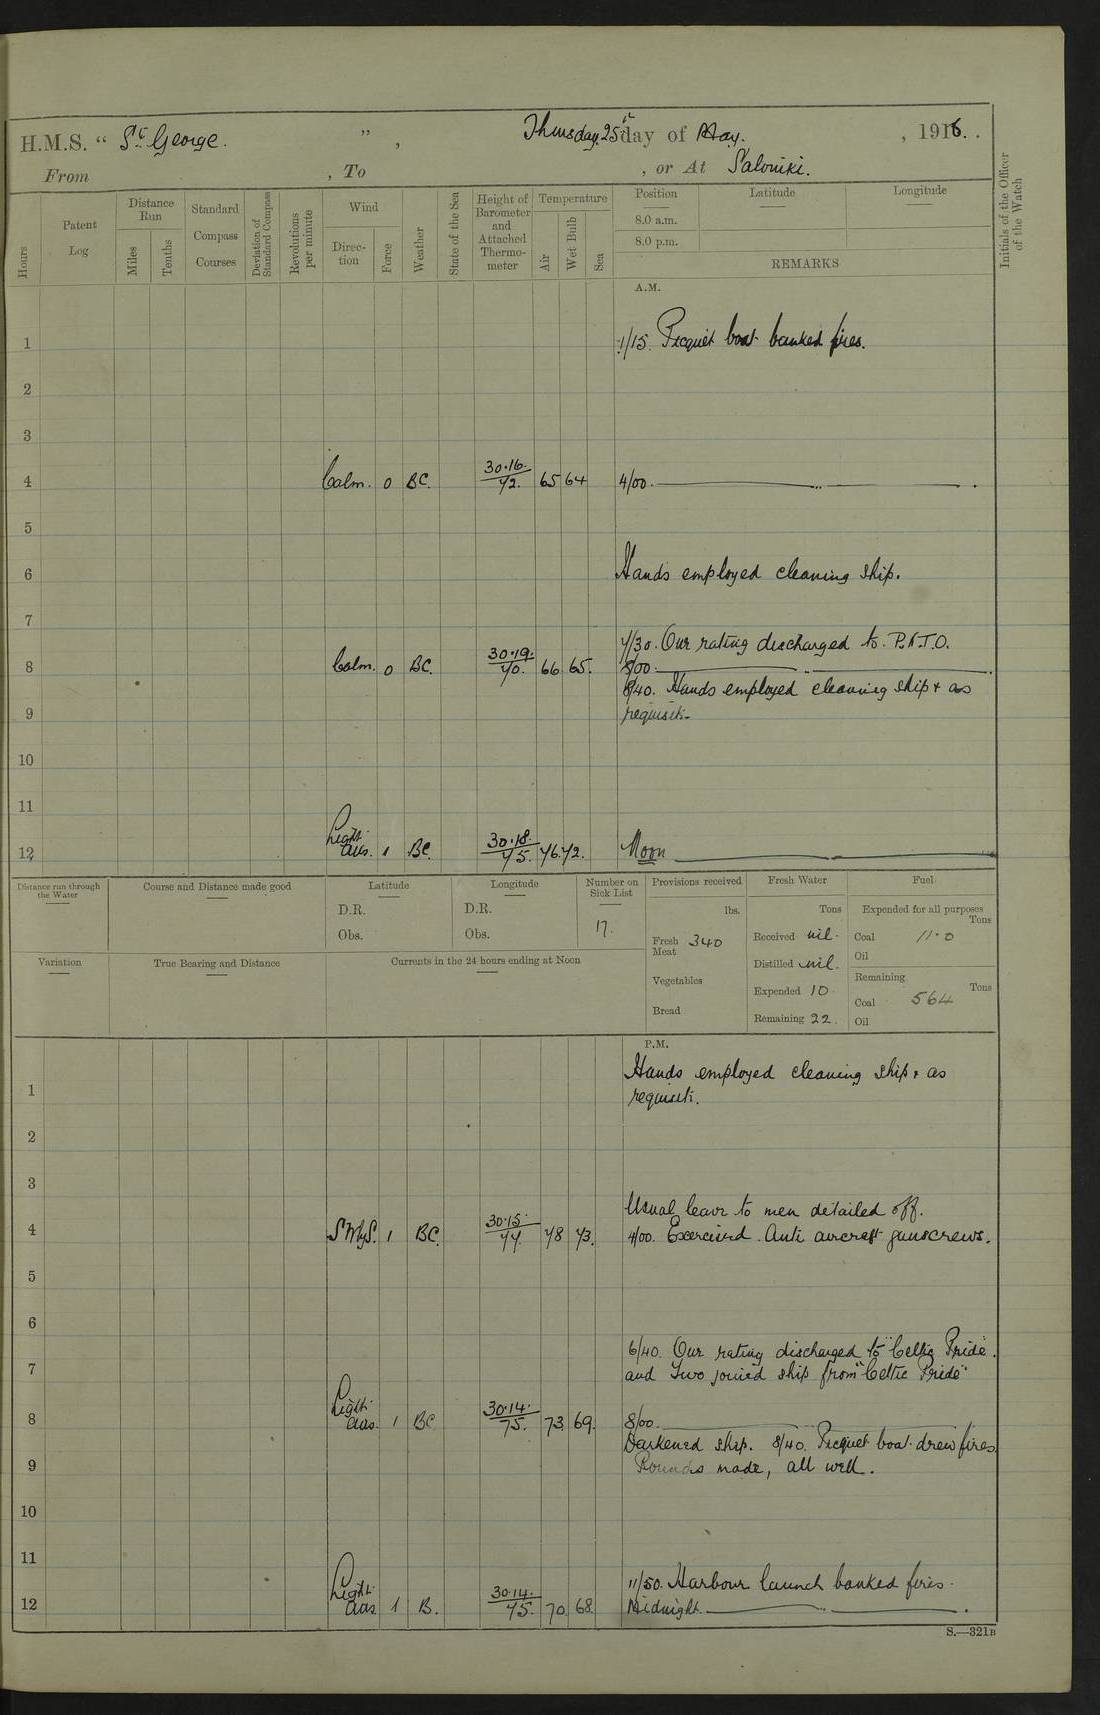 H.M.S. " St. George. " , Thursday 25th day of May. , 1916.
From , To , or At Saloniki.
Hours
Patent Log
Distance Run
Miles
Tenths
Standard Compass Courses
Deviation of Standard Compass
Revolutions per minute
Wind
Direction
Force
Weather
State of the Sea
Height of Barometer and Attached Thermometer
Temperature
Air
Wet Bulb
Sea
Position Latitude Longitude
8.0 a.m.
8.0 p.m.
REMARKS
Initials of the Officer of the Watch
A.M.
1 1/15. Picquet boat banked fires.
2
3
4 Calm. 0 BC. 30.16. 72. 65 64 4/00.
5
6 Hands employed cleaning ship.
7
7/30. Our rating discharged to P.N.T.O.
8 Calm. 0 BC. 30.19. 70. 66 65. 8/00.
8/40. Hands employed cleaning ship & as
9 requisite.
10
11
12 Light airs. 1 BC. 30.18. 75. 76. 72. Noon
Distance run through the Water
Course and Distance made good
Latitude
D.R.
Obs.
Longitude
D.R.
Obs.
Number on Sick List
17.
Provisions received
lbs.
Fresh Meat 340
Vegetables
Bread
Fresh Water
Tons
Received nil.
Distilled nil.
Expended 10
Remaining 22.
Fuel
Expended for all purposes
Tons
Coal 11.0
Oil
Remaining
Tons
Coal 564
Oil
Variation
True Bearing and Distance
Currents in the 24 hours ending at Noon
P.M.
Hands employed cleaning ship & as
1 requisite.
2
3
Usual leave to men detailed off.
4 SWbyS. 1 BC. 30.15. 77. 78 73. 4/00. Exercised Anti aircraft gunscrews.
5
6
6/40. Our rating discharged to "Celtic Pride".
7 and Two joined ship from "Celtic Pride"
8 Light airs. 1 BC 30.14. 75. 73. 69. 8/00.
Darkened ship. 8/40. Picquet boat drew fires
9 Rounds made, all well.
10
11
11/50. Harbour launch banked fires.
12 Light airs 1 B. 30.14. 75. 70 68 Midnight.
S.—321B